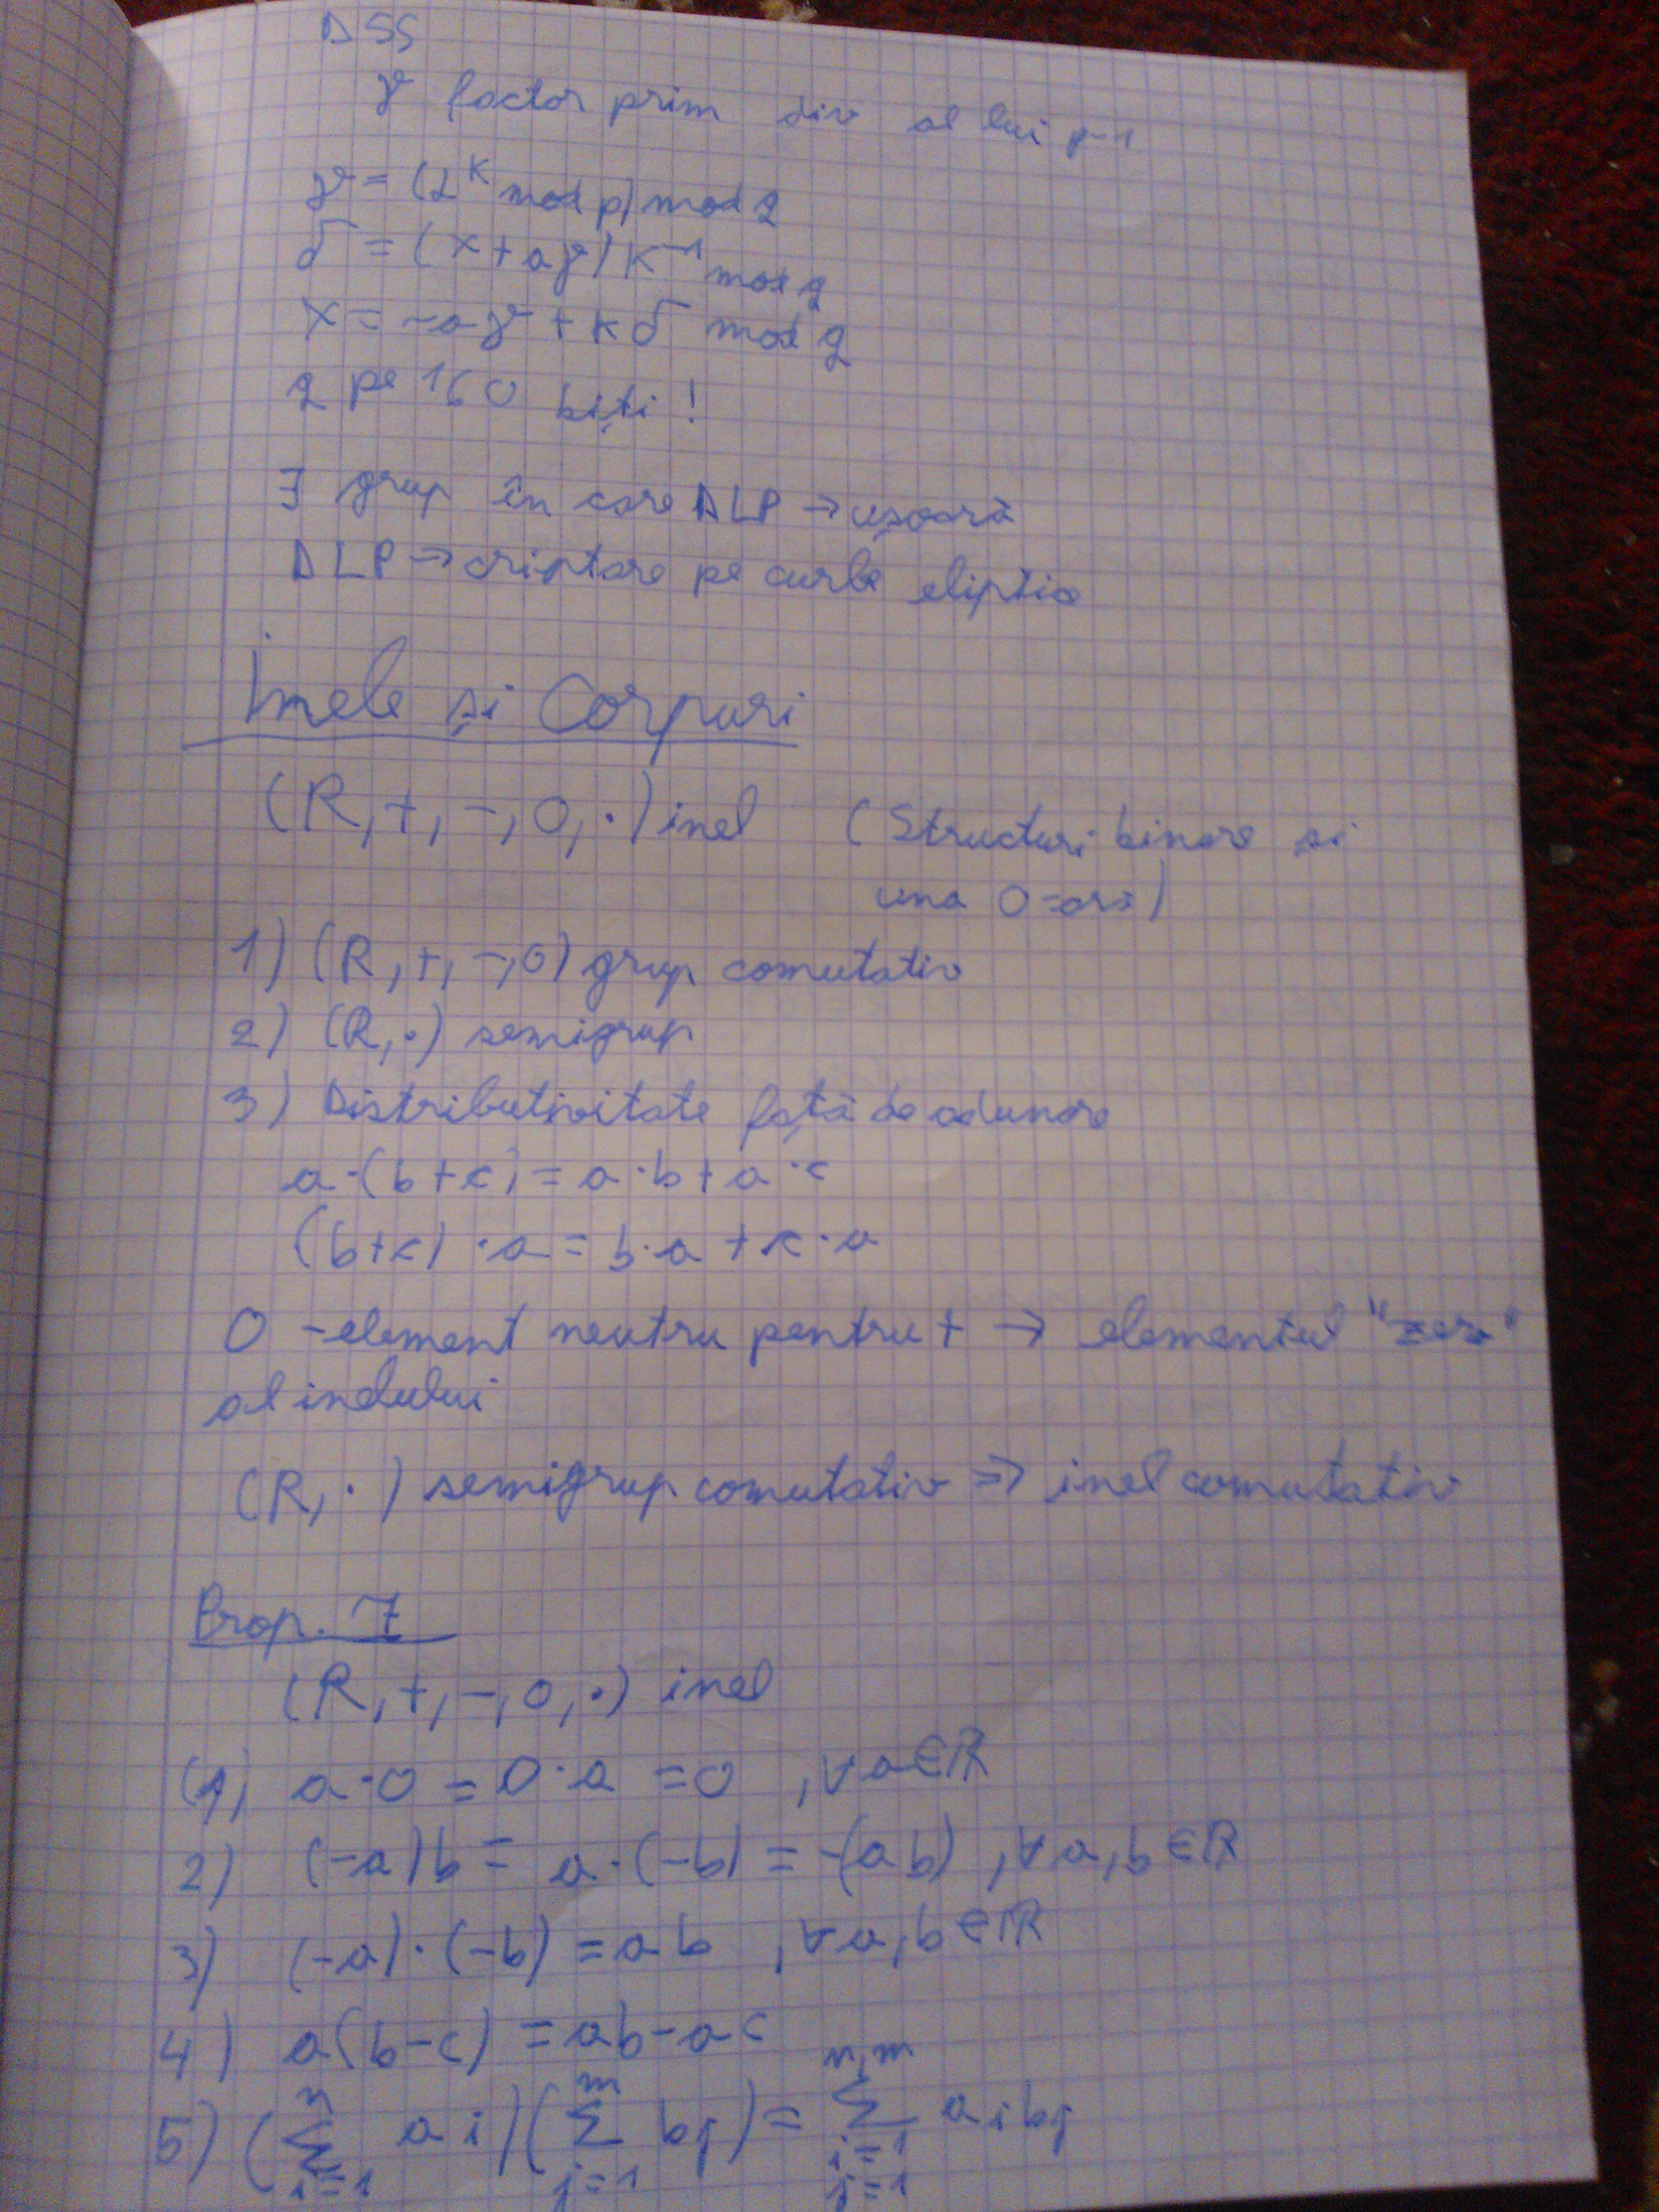 DSS
γ factor prim div al lui p-1
γ = (α^k mod p) mod q
δ = (x + aγ) k^-1 mod q
x = -aγ + kδ mod q
q pe 160 biți!
∃ grup în care DLP → ușoară
DLP → criptare pe curbe eliptice
Inele și Corpuri
(R, +, -, 0, ·) inel (Structuri binare și
una 0-ară)
1) (R, +, -, 0) grup comutativ
2) (R, ·) semigrup
3) Distributivitate față de adunare
a·(b+c) = a·b + a·c
(b+c)·a = b·a + c·a
0 - element neutru pentru + → elementul "zero"
al inelului
(R, ·) semigrup comutativ => inel comutativ
Prop. 7
(R, +, -, 0, ·) inel
(1) a·0 = 0·a = 0, ∀a∈R
2) (-a)b = a·(-b) = -(ab), ∀a,b∈R
3) (-a)·(-b) = ab, ∀a,b∈R
4) a(b-c) = ab-ac
5) (∑_{i=1}^{n} ai)(∑_{j=1}^{m} bj) = ∑_{i=1, j=1}^{n,m} aibj